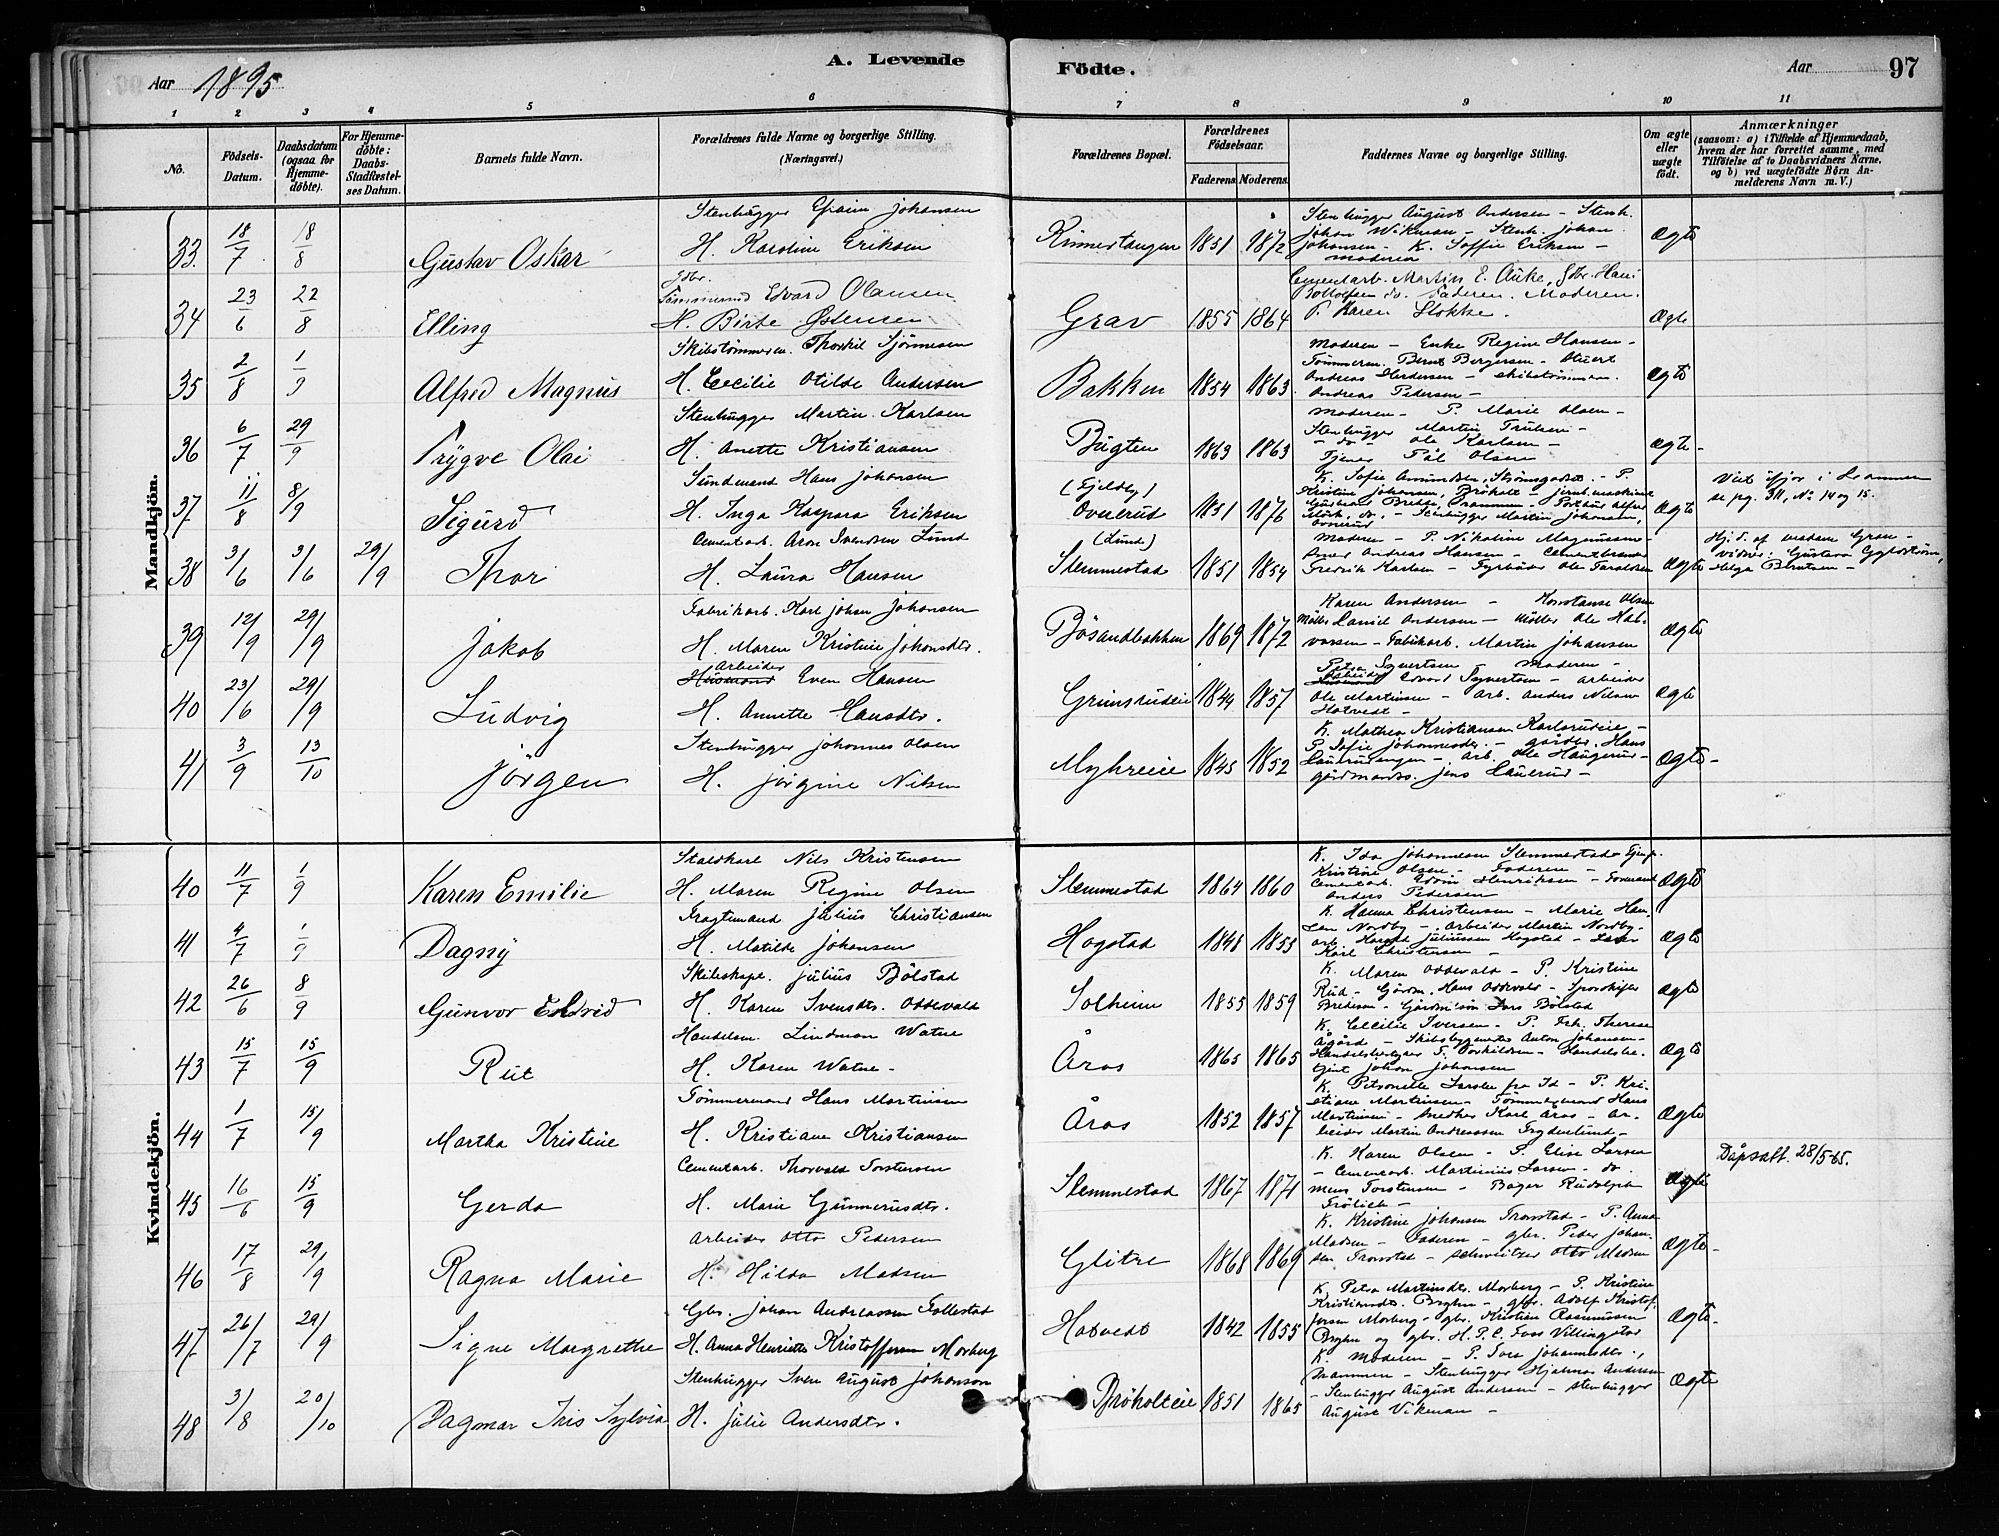 Aar 1895
A. Levende
Födte.
Aar
97
1 2 3 4 5 6 7 8 9 10 11
No.
Födsels-Datum.
Daabsdatum (ogsaa for Hjemme-döbte).
For Hjemme-döbte: Daabs-Stadfæstel-ses Datum.
Barnets fulde Navn.
Forældrenes fulde Navne og borgerlige Stilling. (Næringsvei.)
Forældrenes Bopæl.
Forældrenes Födselsaar.
Faderens. Moderens.
Faddernes Navne og borgerlige Stilling.
Om ægte eller uægte födt.
Anmærkninger
(saasom: a) i Tilfælde af Hjemmedaab, hvem der har forrettet samme, med Tilföielse af to Daabsvidners Navne, og b) ved uægtefödte Börn An-melderens Navn m. V.)
Mandkjön.
33 18/7 18/8 Gustav Oskar
Stenhugger Efraim Johansen
H. Karoline Eriksen
1851 1872
Stenhugger August Andersen – Stenh.
Johan Wikman – Stenh. Johan
Johansen – K. Soffie Eriksen –
Moderen
Ægte
34 23/6 22/8 Elling
Gbr.
Tømmermd Edvard Olausen
H. Birte Østensen
Grav 1855 1864
Cementarb. Martin E. Auke, Gbr. Hans
do. Faderen. Moderen.
P. Karen Stokke.
Ægte
35 2/8 1/9 Alfred Magnus
Skibstømmerm. Thorkil
H. Cecilie Otilde Andersen
Bakken 1854 1863
Moderen – Enke Regine Hansen –
Tømmerm. Bernt Bergersen – Stuert
Andreas – Skibstømmerm.
Andreas Pedersen –
Ægte
36 6/7 29/9 Trygve Olai
Stenhugger Martin Karlsen
H. Anette Kristiansen
Bugten 1863 1863
Moderen – P. Marie Olsen –
Stenhugger Martin
– do – Ole Karlsen –
Tjener Pål Olsen
Ægte –
37 11/8 8/9 Sigurd
Hans Johansen
H. Inga Kaspara Eriksen
(Fjeldly)
Overud 1851 1876
K. Sofie Amundsen, Strømsgodset. – P.
Kristine Johansen, Brøholt –
Stenhugger Martin Johansen,
Overud
Ægte
Viet i Drammen
se pg. 311, No 14 og 15.
38 3/6 3/6 29/9 Thor
Cementarb. Aron Svendsen Lund
H. Laura Hansen
(Lund)
Slemmestad 1851 1854
Moderen – P. Nikoline Magnussen –
Andreas Hansen – Cementbrænder
Fredrik Karlsen – Fyrbøder Ole
Ægte
Hj. d. af
vidner: Gustava
Helga Berntsen –
39 12/9 29/9 Jakob
Fabrikarb. Karl Johan Johansen
H. Maren Kristine Johansdtr.
Bøsandbakken 1869 1872
Karen Andersen – Konstanse Olsen
Møller Daniel Andersen – Møller Ole Hal-
vorsen – Fabrikarb. Martin Johansen
Ægte
40 23/6 29/9 Ludvig
Arbeider
Husmand Even Hansen
H. Annette Hansdtr.
1844 1857
Petra Syvertsen – Moderen –
Arbeider
Edvard Syvertsen – arbeider
Ole Martinsen – arb. Anders Nilsen
Hotvedt –
Ægte
41 3/9 13/10 Jørgen
Stenhugger Johannes Olsen
H. Jørgine Nilsen
Myhreeie 1845 1852
K. Mathea Kristiansen Karlsrudeie –
P. Sofie Johannesdtr. – Hans
– Arb. Ole Haugerud –
Jens Lauerud –
Ægte –
Kvindekjön.
40 11/7 1/9 Karen Emilie
Staldkarl Nils Kristensen
H. Maren Regine Olsen
Slemmestad 1864 1860
K. Ida Johannesen Slemmestad –
Kristine Olsen – Faderen –
Cementarb. Edvin Henriksen –
Anders Pedersen
Ægte
41 4/7 1/9 Dagny
Fragtemand Julius Christiansen
H. Matilde Johansen
Hogstad 1848 1853
K. Hanna Christensen – Marie Han-
sen Nordby – Arbeider Martin Nordby –
arb. Harald Juliussen Hogstad –
Karl Christensen –
Ægte
42 26/6 8/9 Gunvor Eldrid
Skibskapt. Julius Bølstad
H. Karen Svensdtr. Oddevald
Solheim 1855 1859
K. Maren Oddevald – P. Kristine
Rud – Gårdm. Hans Oddevald –
Bredesen – Lars Bølstad
Ægte
43 15/7 15/9 Rut
Handelsm. Lindman Watne
H. Karen Watne –
Åros 1865 1865
K. Cecilie Iversen – P. Frk. Therese
Ågård – Skibsbygmester Anton Johansen –
Handelsbetjent T. Torkildsen – Handelsbe-
tjent Johan Johansen
Ægte
44 1/7 15/9 Martha Kristine
Tømmermand Hans Martinsen
H. Kristiane Kristiansen
Åros 1852 1857
K. Petronelle Larsen fra Id – P. Kri-
stiane Martinsen – Tømmermand Hans
Martinsen – Snedker Karl Åros – Ar-
beider Martin Andreassen Frydenlund –
Ægte
45 16/6 15/9 Gerda
Cementarb. Thorvald Torstensen
H. Marie Gunnerusdtr.
Slemmestad 1867 1871
K. Karen Olsen – P. Elise Larsen
– Cementarb. Martinius Larsen – do.
Mens Torstensen – Bager Rudolph
Frölich –
Ægte
Dåpsatt. 28/5-65.
46 17/8 29/9 Ragna Marie
Arbeider Otto Pedersen
H. Hilda Madsen
Glitre 1868 1869
K. Kristine Johansen Tronstad – P. Anna
Madsen – Faderen – gbr. Peder Johan-
sen Tronstad – Schweitzer Otto Madsen
Ægte –
47 26/7 29/9 Signe Margrethe
Gbr. Johan Andreassen Follestad
H. Anna Henriette Kristoffersen Morberg
Hotvedt 1842 1855
K. Petra Martinsdtr. Morberg – P. Kristine
Kristiansdtr. Berghm – gbr. Adolf Kristof-
fersen Morberg – gbr. Kristian Rasmussen
Berghm og gbr. H. P. C. Foss Villingstad
Ægte –
48 3/8 20/10 Dagmar Iris Sylvia
Stenhugger Sven August Johanson
H. Julie Andersdtr.
Brøholteie 1851 1865
K. Moderen – P. Tora Johannesdtr.,
– Stenhugger Hjalmar Andersen
– Stenhugger August Andersen – Stenhugger
August Vikman –
Ægte